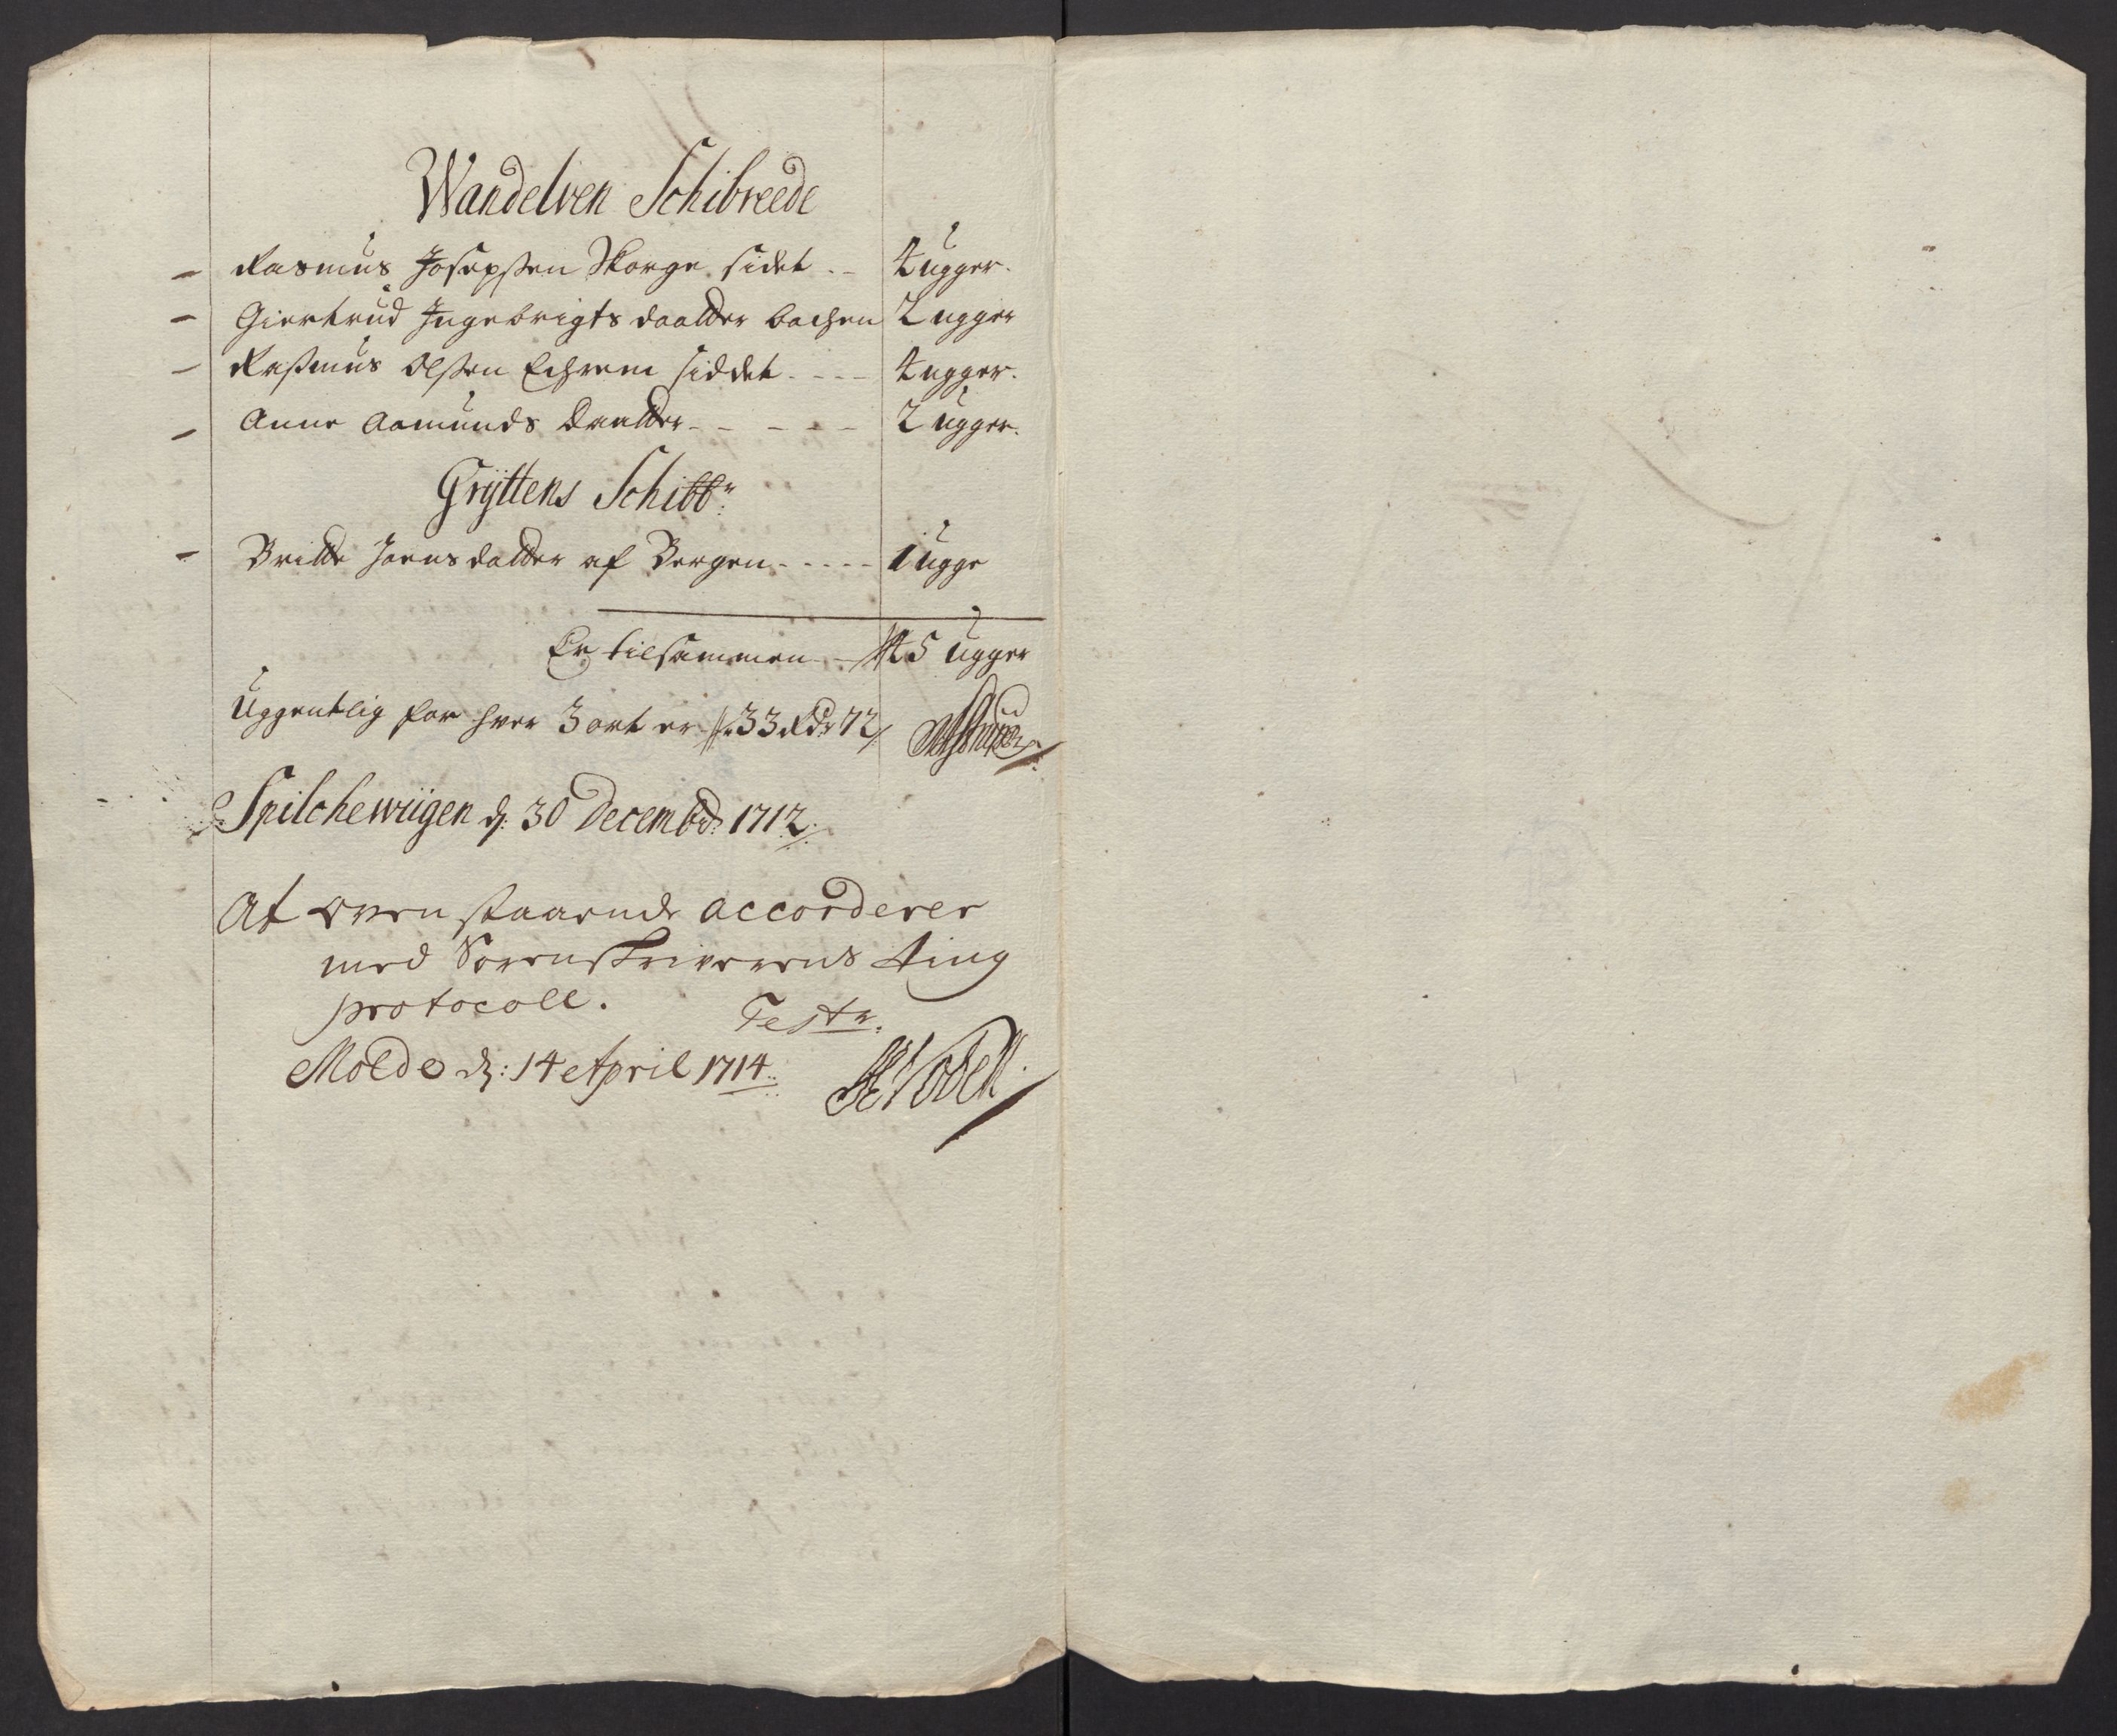 Wandelven Schibreede
Rasmus Josepsen Skorge sidet .. 4 ugger.
Giertrud Ingebrigts daatter bachen 2 ugger
Rasmus Olsen Echrem siddet .... 4 ugger.
Anne Aamunds daatter - - - - - 2 ugger.
Gryttens Schibbr:
Britte Joensdatter af Bergen ..... 1 ugge
Er tilsammen 45 ugger
Uggentlig for hver 3 ort er 33 Rdr 72
Spilchewiigen d: 30 Decembr 1712
At ovenstaaende accorderer
med Sorenskriverens ting
protocoll. Testr.
Molde d: 14 April 1714